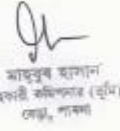 মাহবুব হাসান
সহকারী কমিশনার (ভূমি)
বেড়া, পাবনা